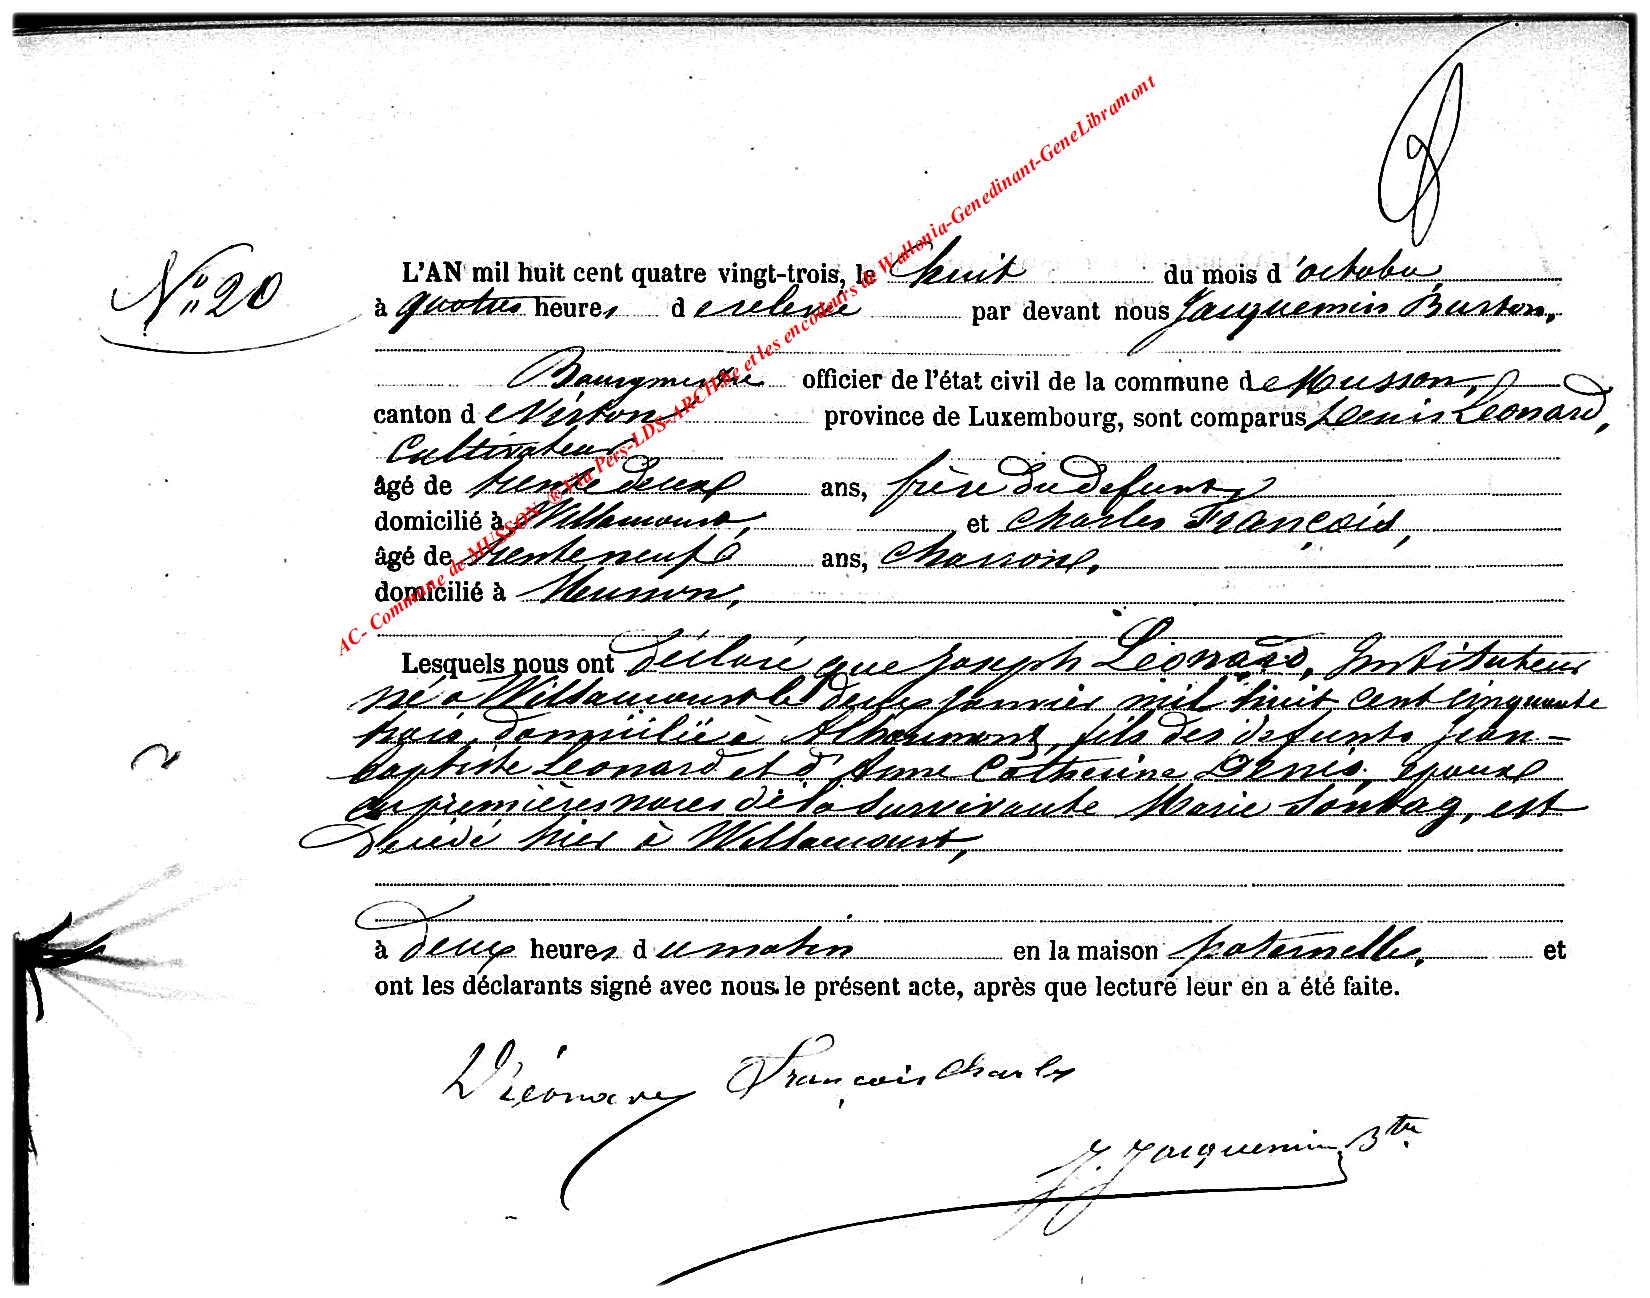 N° 20
L'AN mil huit cent quatre vingt-trois, le huit du mois d'octobre
à quatre heures de relevée par devant nous Jacquemin Burton,
Bourgmestre officier de l'état civil de la commune de Musson,
canton de Virton province de Luxembourg, sont comparus Denis Leonard,
Cultivateur
âgé de trente deux ans, frère du defunt
domicilié à Willancourt, et Charles François,
âgé de trente neuf ans, charron,
domicilié à Musson,
Lesquels nous ont déclaré que Joseph Léonard, Instituteur
né à Willancourt le deux Janvier mil huit cent cinquante
trois, domicilié à, fils des defunts Jean-
baptiste Leonard et d'Anne Catherine Denis, epoux
en premières noces de la survivante Marie Sontag, est
décédé hier à Willancourt,
à deux heures du matin en la maison paternelle, et
ont les déclarants signé avec nous le présent acte, après que lecture leur en a été faite.
D Léonard François Charles
J. Jacquemin Btu
AC- Commune de MUSSON ® Via Pers-LDS-ARCH.be et les encodeurs de Wallonia-Genedinant-GeneLibramont